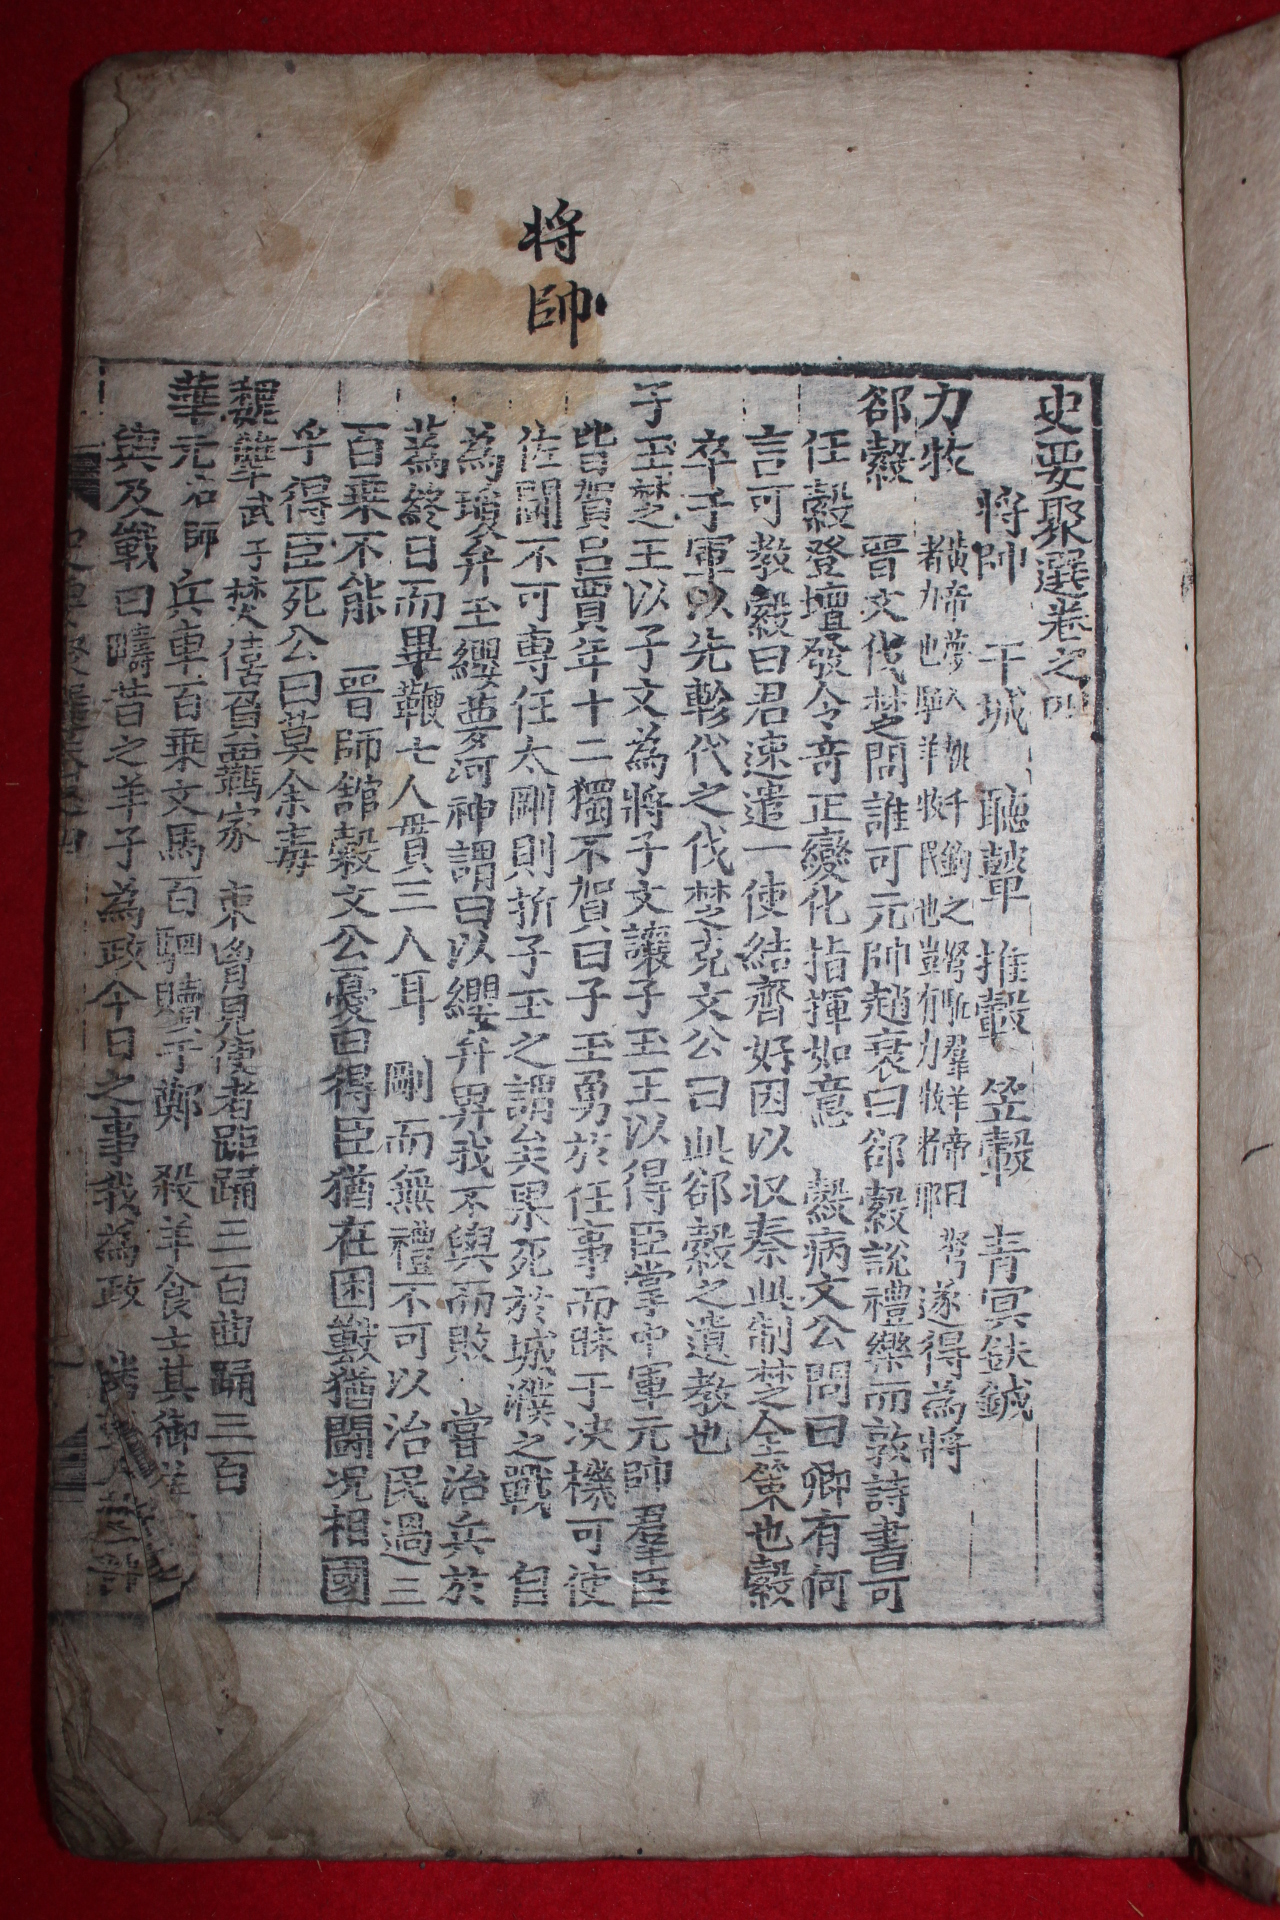 將帥
史要聚選卷之四
將帥 干城 聽鼙 推轂 笠轂 青冥鈇鉞
力牧 黃帝夢人執千鈞之弩驅羣羊帝曰弩
者力也驅羊牧民也豈有力牧者耶 遂得為將
郤縠 晋文伐楚問誰可元帥趙衰曰郤縠說禮樂而敦詩書可
任縠登壇發令奇正變化指揮如意 縠病文公問曰卿有何
言可教縠曰君速遣一使結齊好因以収秦此制楚之全策也縠
卒子軍以先軫代之伐楚克文公曰此郤縠之遺教也
子玉楚之王以子文為將子文讓子玉王以得臣掌中軍元帥羣臣
皆賀吕賈年十二獨不賀曰子玉勇於任事而昧于决機可使
佐鬪不可專任太剛則折子玉之謂矣果死於城濮之戰 自
為瓊弁玉纓夢河神謂曰以纓弁畀我不與而敗 嘗治兵於
蒍終日而畢鞭七人貫三人耳 剛而無禮不可以治民過三
百乗不能 晋師舘糓文公憂曰得臣猶在困獸猶鬪况相國
乎得臣死公曰莫余毒
魏犨武子焚僖負羈家 束胷見使者距踊三百曲踊三百
華元右師 兵車百乗文馬百駟贖于鄭 殺羊食士其御羊
與及戰曰疇昔之羊子為政今日之事我為政